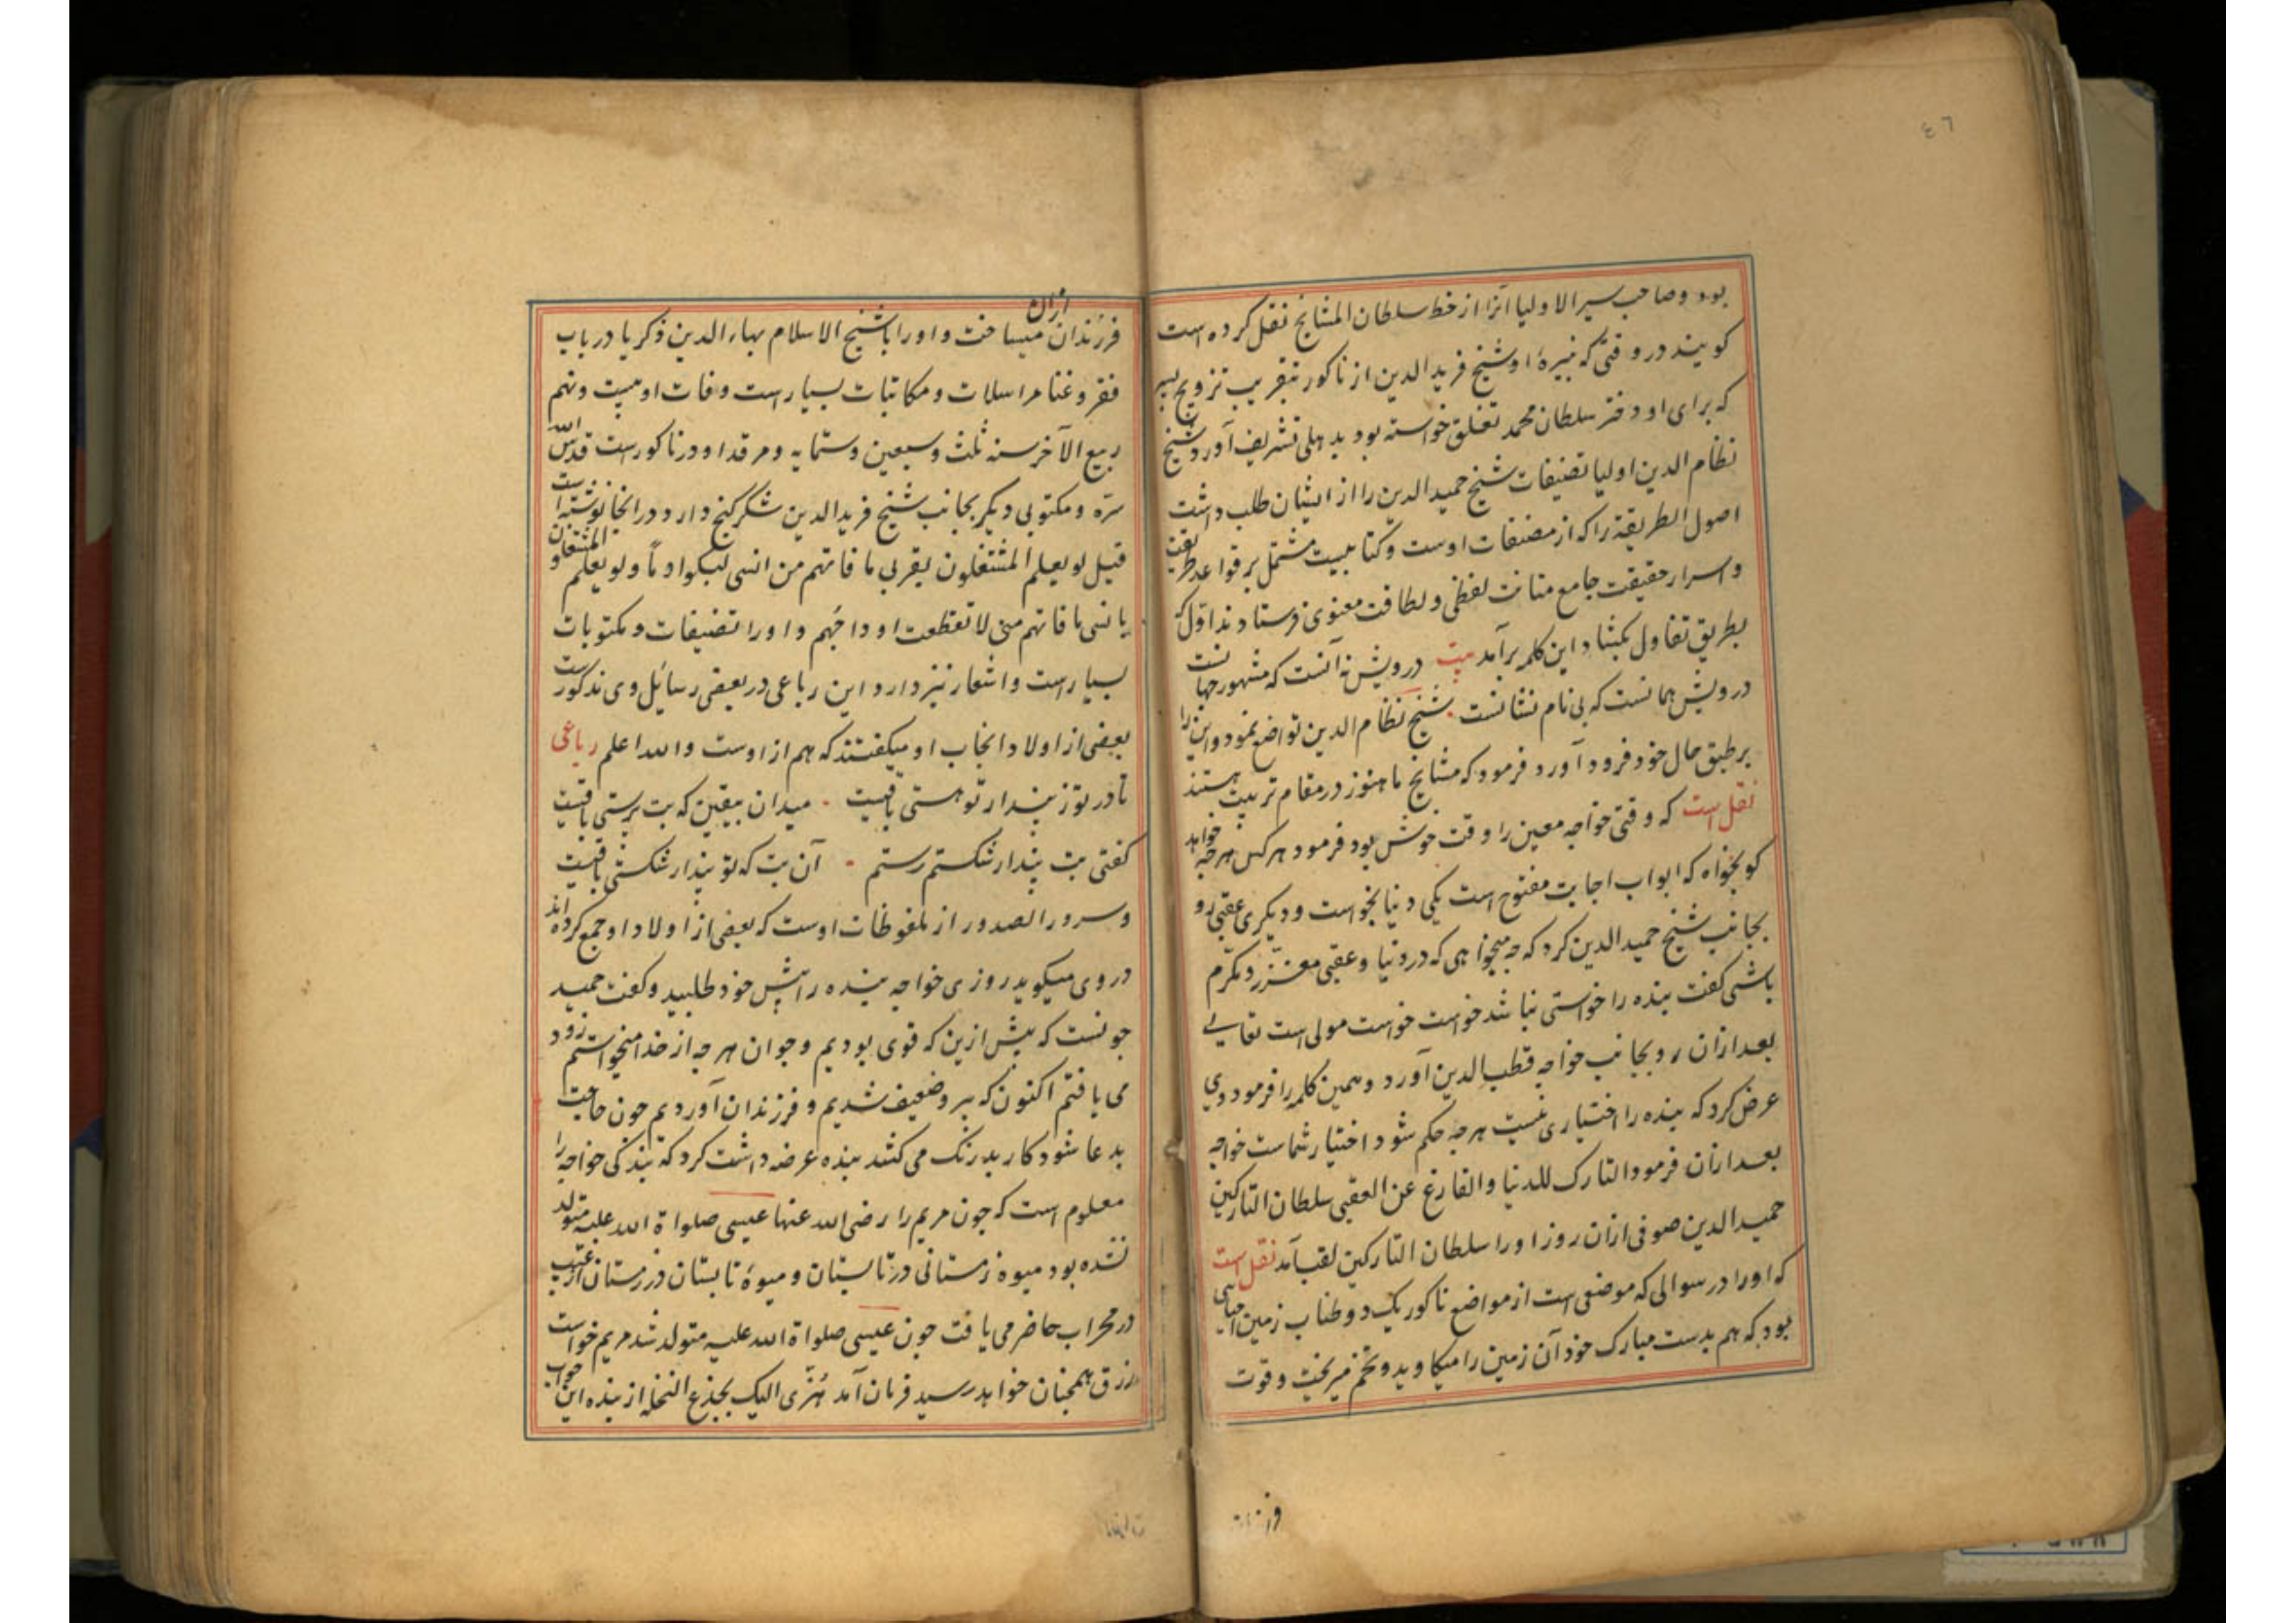 ٤٦
بود و صاحب سیر الاولیا آنرا از خط سلطان المشایخ نقل کرده است
کویند در وقتی که نبیرهٔ او شیخ فرید الدین از ناکور بتقریب تزویج پسر
که برای او دختر سلطان محمد تغلق خواسته بود بدهلی تشریف آورد و شیخ
نظام الدین اولیا تصنیفات شیخ حمید الدین را از ایشان طلب داشت
اصول الطریقة را که از مصنفات اوست و کتابیست مشتمل بر قواعد طریقت
و اسرار حقیقت جامع متانت لفظی و لطافت معنوی فرستادند اوّل که
بطریق تفاول بکشاد این کلمه برآمد بیت درویش نه آنست که مشهور جهانست
درویش همانست که بی نام نشانست . شیخ نظام الدین تواضع نمود و این را
بر طبق حال خود فرود آورد فرمود که مشایخ ما هنوز در مقام تربیت هستند
نقل است که وقتی خواجه معین را وقت خوش بود فرمود هر کس هر چه خواهد
کو بخواه که ابواب اجابت مفتوح است یکی دنیا بخواست و دیکری عقبی رو
بجانب شیخ حمید الدین کرد که چه میخواهی که در دنیا و عقبی معزّز و مکرّم
باشی کفت بنده را خواستی نباشد خواست خواست مولی است تعالی
بعد ازان رو بجانب خواجه قطب الدین آورد و همین کلمه را فرمود وی
عرض کرد که بنده را اختیاری نیست هر چه حکم شود اختیار شماست خواجه
بعد ازان فرمود التارک للدنیا و الفارغ عن العقبی سلطان التارکین
حمید الدین صوفی ازان روز او را سلطان التارکین لقب آمد نقل است
که او را در سوالی که موضعی است از مواضع ناکور یک دو طناب زمین احیایی
بود که هم بدست مبارک خود آن زمین را میکاوید و تخم میریخت و قوت
فرزندان
فرزندان ازان میساخت و او را با شیخ الاسلام بهاء الدین ذکریا در باب
فقر و غنا مراسلات و مکاتبات بسیار است وفات او بیست و نهم
ربیع الآخر سنه ثلث و سبعین و ستمایه و مرقد او در ناکور است قدس الله
سرّه و مکتوبی دیکر بجانب شیخ فرید الدین شکرکنج دارد در انجا نوشته است
قیل لو یعلم المشتغلون بقربی ما فاتهم من انسی لبکوا دمًا و لو یعلم المشتغلون
بانسی ما فاتهم منی لا تقطعت اوداجهم و او را تصنیفات و مکتوبات
بسیار است و اشعار نیز دارد این رباعی در بعضی رسائل وی مذکور است
بعضی از اولاد انجاب او میکفتند که هم از اوست والله اعلم رباعی
تا در تو ز پندار تو هستی باقیست . میدان بیقین که بت پرستی باقیست
کفتی بت پندار شکستم رستم . آن بت که تو پندار شکستی باقیست
و سرور الصدور از ملفوظات اوست که بعضی از اولاد او جمع کرده اند
در وی میکوید روزی خواجه بنده را پیش خود طلبید و کفت حمید
چونست که پیش ازین که قوی بودیم و جوان هر چه از خدا میخواستم زود
می یافتم اکنون که پیر و ضعیف شدیم و فرزندان آوردیم چون حاجت
بدعا شود کار بدرنک می کشد بنده عرضه داشت کرد که بندکی خواجه را
معلوم است که چون مریم را رضی الله عنها عیسی صلواة الله علیه متولد
نشده بود میوهٔ زمستانی در تابستان و میوهٔ تابستان در زمستان از غیب
در محراب حاضر می یافت چون عیسی صلواة الله علیه متولد شد مریم خواست
رزق همچنان خواهد رسید فرمان آمد هُزّی الیک بجذع النخلة از بنده این جواب